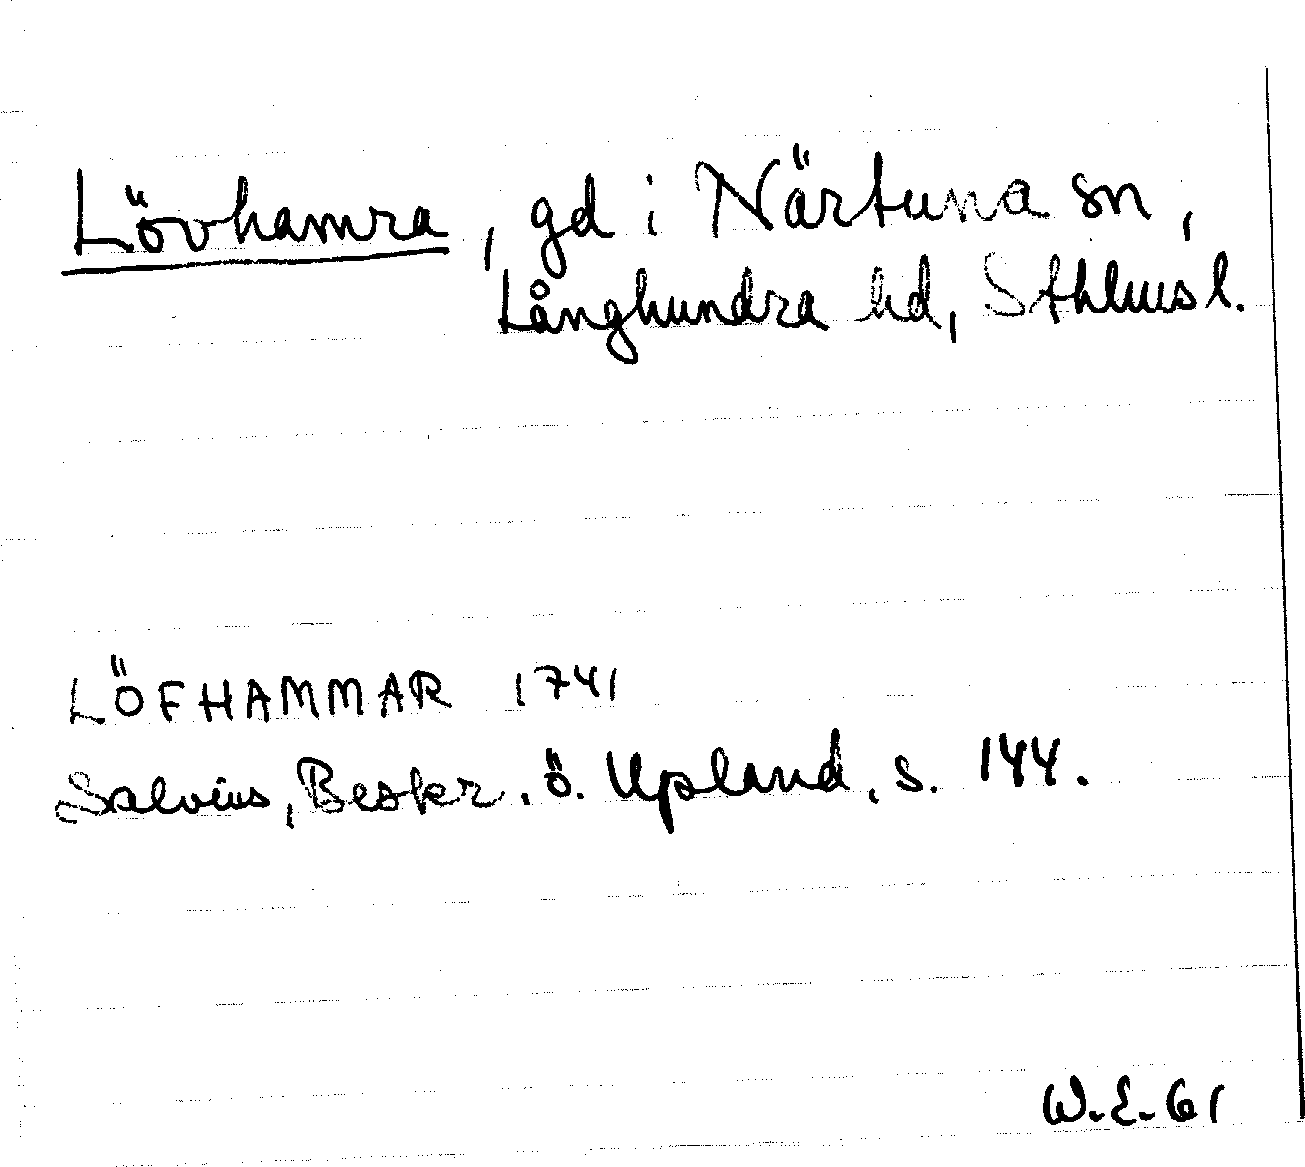 Lövhamra, gd i Närtuna sn,
Långhundra hd, Sthlms l.
LÖFHAMMAR 1741
Salvius, Beskr. ö. Upland, s. 144.
W.E. 61